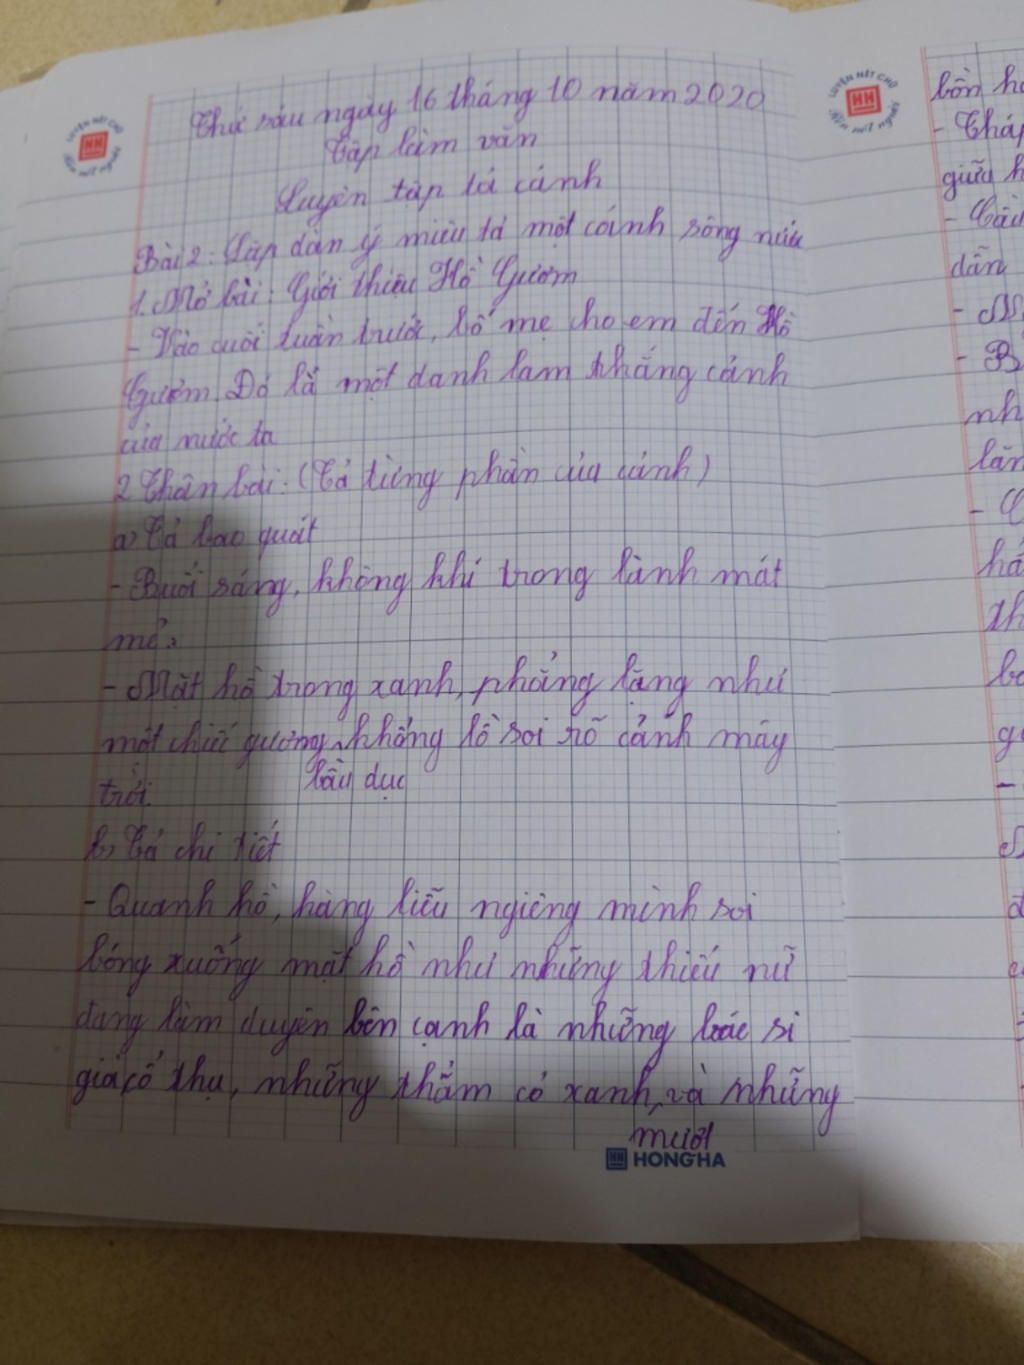 LUYỆN NÉT CHỮ
HH
Rèn nết người
Thứ sáu ngày 16 tháng 10 năm 2020
Tập làm văn
Luyện tập tả cảnh
Bài 2: Lập dàn ý miêu tả một cảnh sông nước
1. Mở bài: Giới thiệu Hồ Gươm
- Vào cuối tuần trước, bố mẹ cho em đến Hồ
Gươm. Đó là một danh lam thắng cảnh
của nước ta
2. Thân bài: (Tả từng phần của cảnh)
a) Tả bao quát
- Buổi sáng, không khí trong lành mát
mẻ.
- Mặt hồ trong xanh, phẳng lặng như
một chiếc gương khổng lồ soi rõ cảnh mây
trời. bầu dục
b) Tả chi tiết
- Quanh hồ, hàng liễu ngiêng mình soi
bóng xuống mặt hồ như những thiếu nữ
đang làm duyên bên cạnh là những bác si
già cổ thụ, những thảm cỏ xanh, và những
mượt
HH HONG HA
LUYỆN NÉT CHỮ
HH
Rèn nết người
bồn h
- Tháp
giữa h
- Cầu
dẫn
- M
- B
nh
lăn
há
th